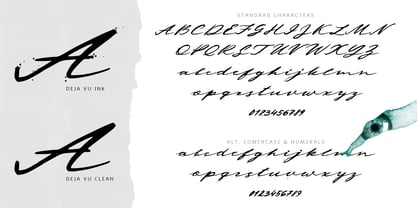 A
DEJA VU INK
A
DEJA VU CLEAN
STANDARD CHARACTERS
ABCDEFGHIJKLMN
OPQRSTUVWXYZ
abcdefghijklmn
opqrstuvwxyz
0123456789
ALT. LOWERCASE & NUMERALS
abcdefghijklmn
opqrstuvwxyz
0123456789